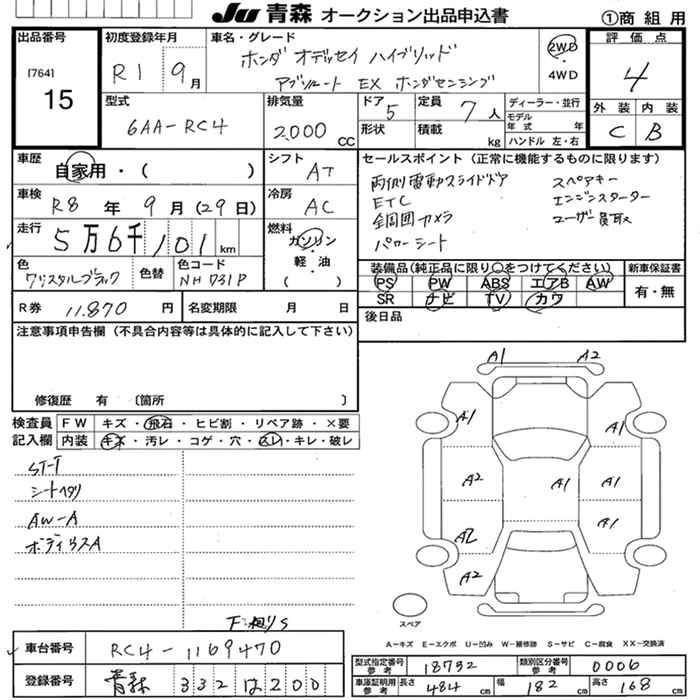 JU 青森 オークション出品申込書 ①商組用
出品番号 [764] 15
初度登録年月 R1 9月
車名・グレード ホンダ オデッセイ ハイブリッド
アブソルート EX ホンダセンシング
2WD・4WD
評価点 4
外装 C 内装 B
型式 6AA-RC4
排気量 2,000 CC
ドア 5 定員 7人
形状 積載 kg
ディーラー・並行
モデル年式 年式
ハンドル 左・右
車歴 自家用・( )
シフト AT
車検 R8年 9月(29日)
冷房 AC
走行 5万6千101km
燃料 ガソリン・軽・油 ( )
色 クリスタルブラック 色替
色コード NH731P
R券 11.870円
名変期限 月 日
セールスポイント(正常に機能するものに限ります)
両側電動スライドドア スペアキー
ETC エンジンスターター
全周囲カメラ ユーザー買取
パワーシート
装備品(純正品に限り○をつけてください)
PS PW ABS エアB AW
SR ナビ TV カワ
新車保証書 有・無
後日品
注意事項申告欄(不具合内容等は具体的に記入して下さい)
修復歴 有 〔箇所 〕
検査員記入欄
FW キズ・飛石・ヒビ割・リペア跡・×要
内装 キズ・汚レ・コゲ・穴・スレ・キレ・破レ
ST-T
シートヘタリ
AW-A
ボディウスA
A1 A2
A1 A1
A2 A1 A1
A2 A1
A2
スペア
A-キズ E-エクボ U-凹み W-補修跡 S-サビ C-腐食 XX-交換済
車台番号 RC4-1169470
登録番号 青森 332 は 200
型式指定番号 参考 18732
類別区分番号 参考 0006
車庫証明用 参考 長さ 484cm 幅 182cm 高さ 168cm